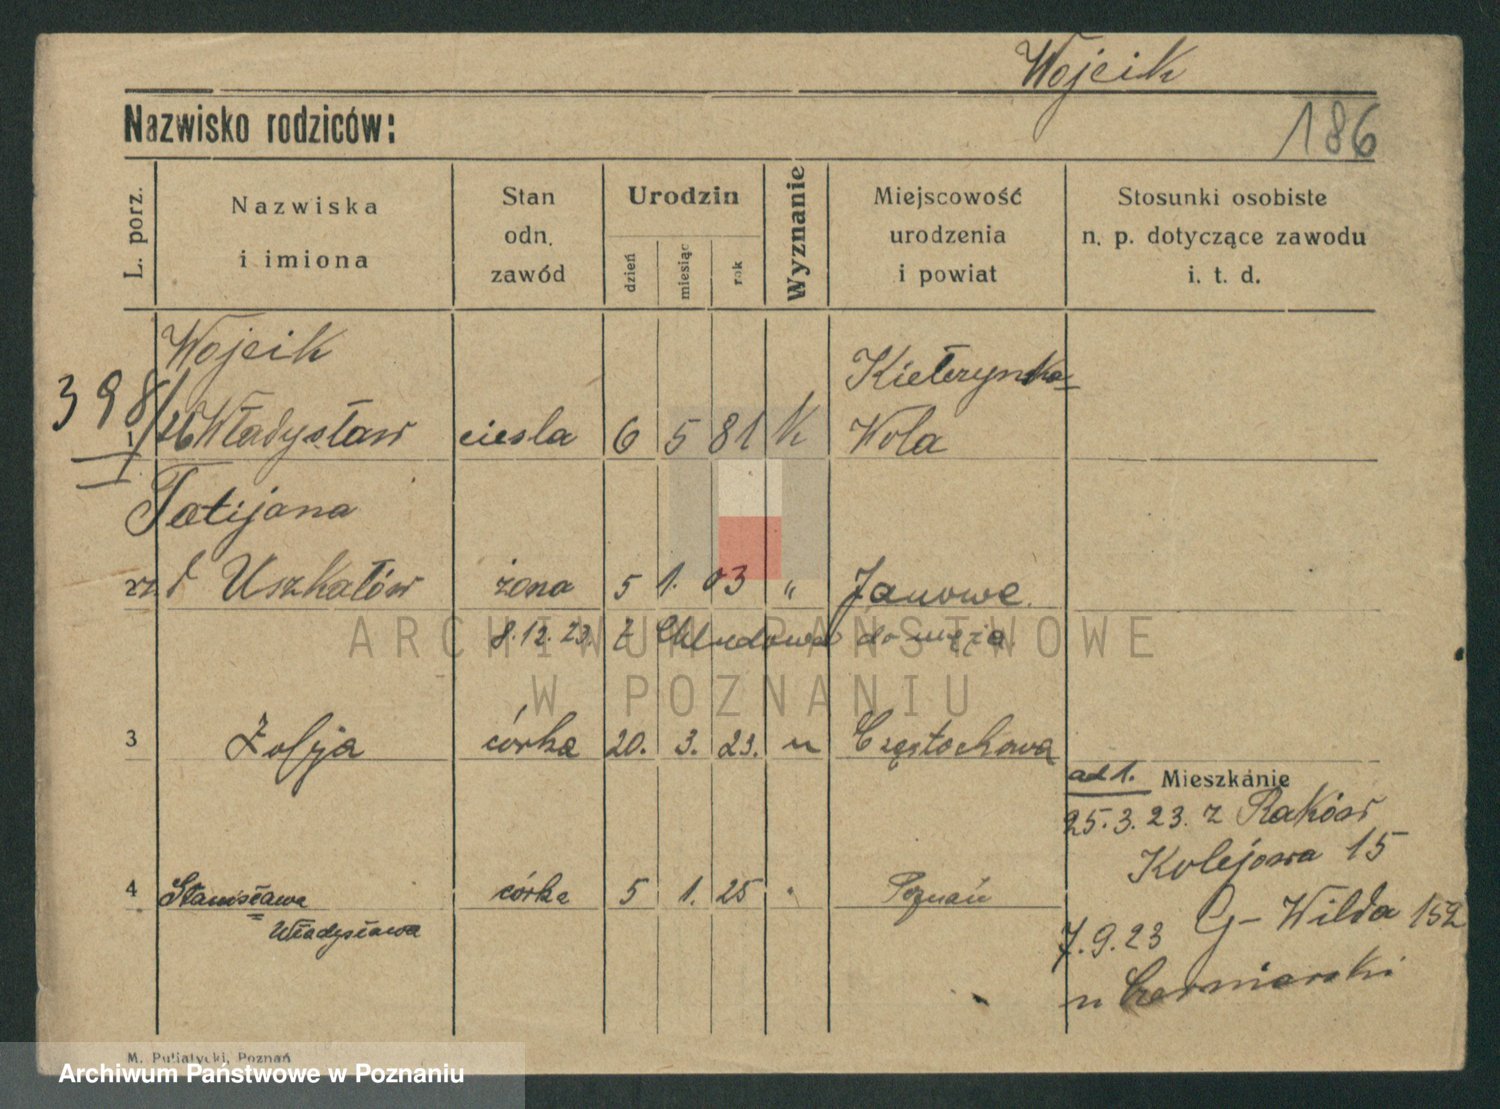 Wojcik
Nazwisko rodziców:
186
L. porz.
Nazwiska
i imiona
Stan
odn.
zawód
Urodzin
dzień
miesiąc
rok
Wyznanie
Miejscowość
urodzenia
i powiat
Stosunki osobiste
n. p. dotyczące zawodu
i. t. d.
Wojcik
398/26
1 Władysław ciesla 6 5 81 k Kieterynka Wola
Tatijana
2 z d Uszkatów żona 5 1. 03 " Janowe.
8.12.23. z do męża
3 Zofja córka 20. 3. 23. " Częstochowa
ad 1. Mieszkanie
25.3.23. z Raków
Kolejowa 15
4 Stanisława córka 5 1. 25 " Poznań
Władysława
7.9.23 G-Wilda 152
u Czerniarski
M. Putiatycki, Poznań
ARCHIWUM PAŃSTWOWE
W POZNANIU
Archiwum Państwowe w Poznaniu